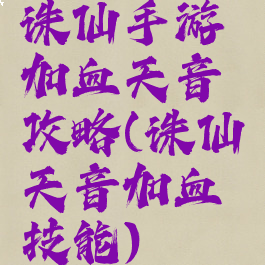 诛仙手游
加血天音
攻略(诛仙
天音加血
技能)